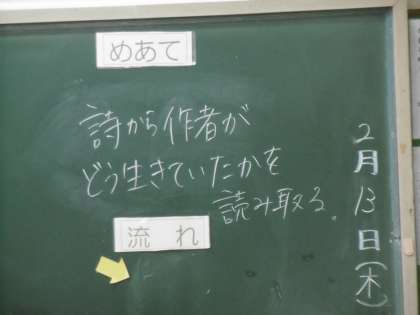 めあて
詩から作者が
どう生きていたかを
読み取る。
流れ
2月13日(木)